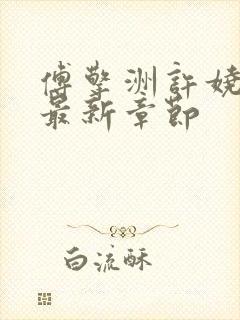 傅擎洲許嬈
最新章節
白流酥